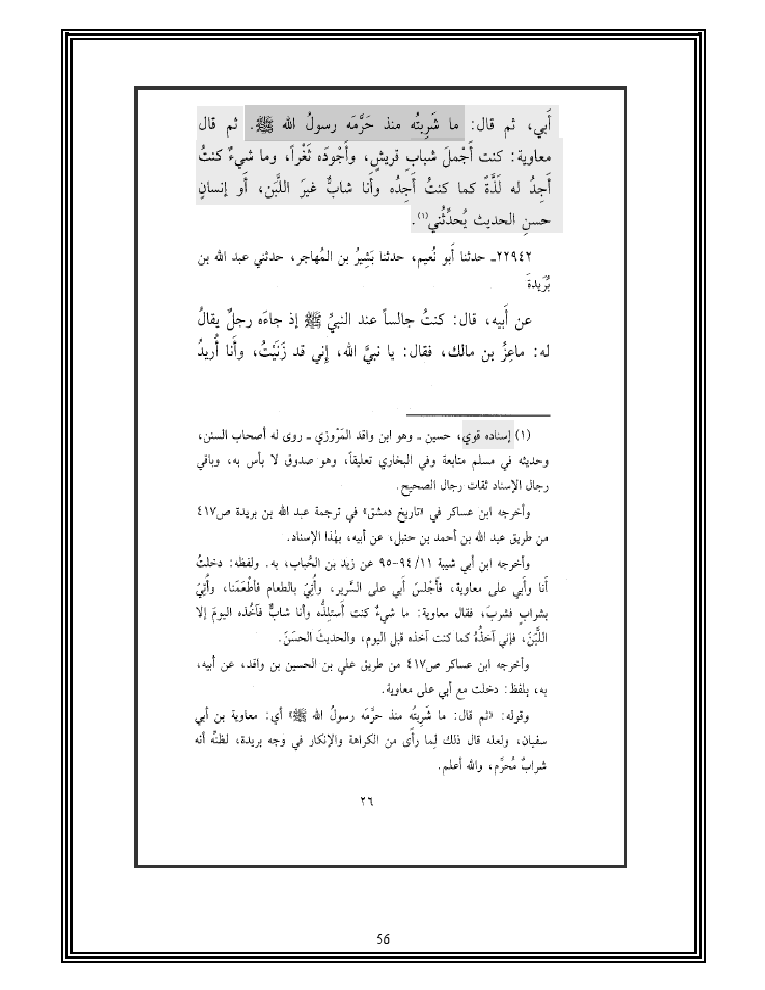 أَبي، ثم قال: ما شَرِبتُه منذ حَرَّمَه رسولُ الله ﷺ. ثم قال
معاوية: كنت أَجْملَ شبابِ قريشٍ، وأَجْودَه ثَغْراً، وما شيءٌ كنتُ
أَجِدُ له لَذَّةً كما كنتُ أَجِدُه وأَنا شابٌّ غيرَ اللَّبَنِ، أَو إنسانٍ
حسنِ الحديث يُحدِّثُني(١).
٢٢٩٤٢ـ حدثنا أَبو نُعيم، حدثنا بَشِيرُ بن المُهاجر، حدثني عبد الله بن
بُرَيدةَ
عن أَبيه، قال: كنتُ جالساً عند النبيِّ ﷺ إذ جاءَه رجلٌ يقالُ
له: ماعِزُ بن مالك، فقال: يا نبيَّ الله، إني قد زَنَيْتُ، وأَنا أُريدُ
(١) إسناده قوي، حسين ـ وهو ابن واقد المَرْوزي ـ روى له أصحاب السنن،
وحديثه في مسلم متابعة وفي البخاري تعليقاً، وهو صدوق لا بأس به، وباقي
رجال الإسناد ثقات رجال الصحيح.
وأخرجه ابن عساكر في «تاريخ دمشق» في ترجمة عبد الله بن بريدة ص٤١٧
من طريق عبد الله بن أحمد بن حنبل، عن أبيه، بهٰذا الإسناد.
وأخرجه ابن أبي شيبة ١١/ ٩٤-٩٥ عن زيد بن الحُباب، به. ولفظه: دخلتُ
أنا وأبي على معاوية، فأَجْلسَ أبي على السَّرير، وأُتِيَ بالطعام فأطْعَمَنا، وأُتِيَ
بشرابٍ فشربَ، فقال معاوية: ما شيءٌ كنت أستلِذُّه وأنا شابٌّ فآخُذه اليومَ إلا
اللَّبَنَ، فإني آخذُهُ كما كنت آخذه قبل اليوم، والحديثَ الحسَنَ.
وأخرجه ابن عساكر ص٤١٧ من طريق علي بن الحسين بن واقد، عن أبيه،
به، بلفظ: دخلت مع أبي على معاوية.
وقوله: «ثم قال: ما شَرِبتُه منذ حرَّمَه رسولُ الله ﷺ» أي: معاوية بن أبي
سفيان، ولعله قال ذلك لِما رأى من الكراهة والإنكار في وجه بريدة، لظنِّه أنه
شرابٌ مُحرَّم، والله أعلم.
٢٦
56